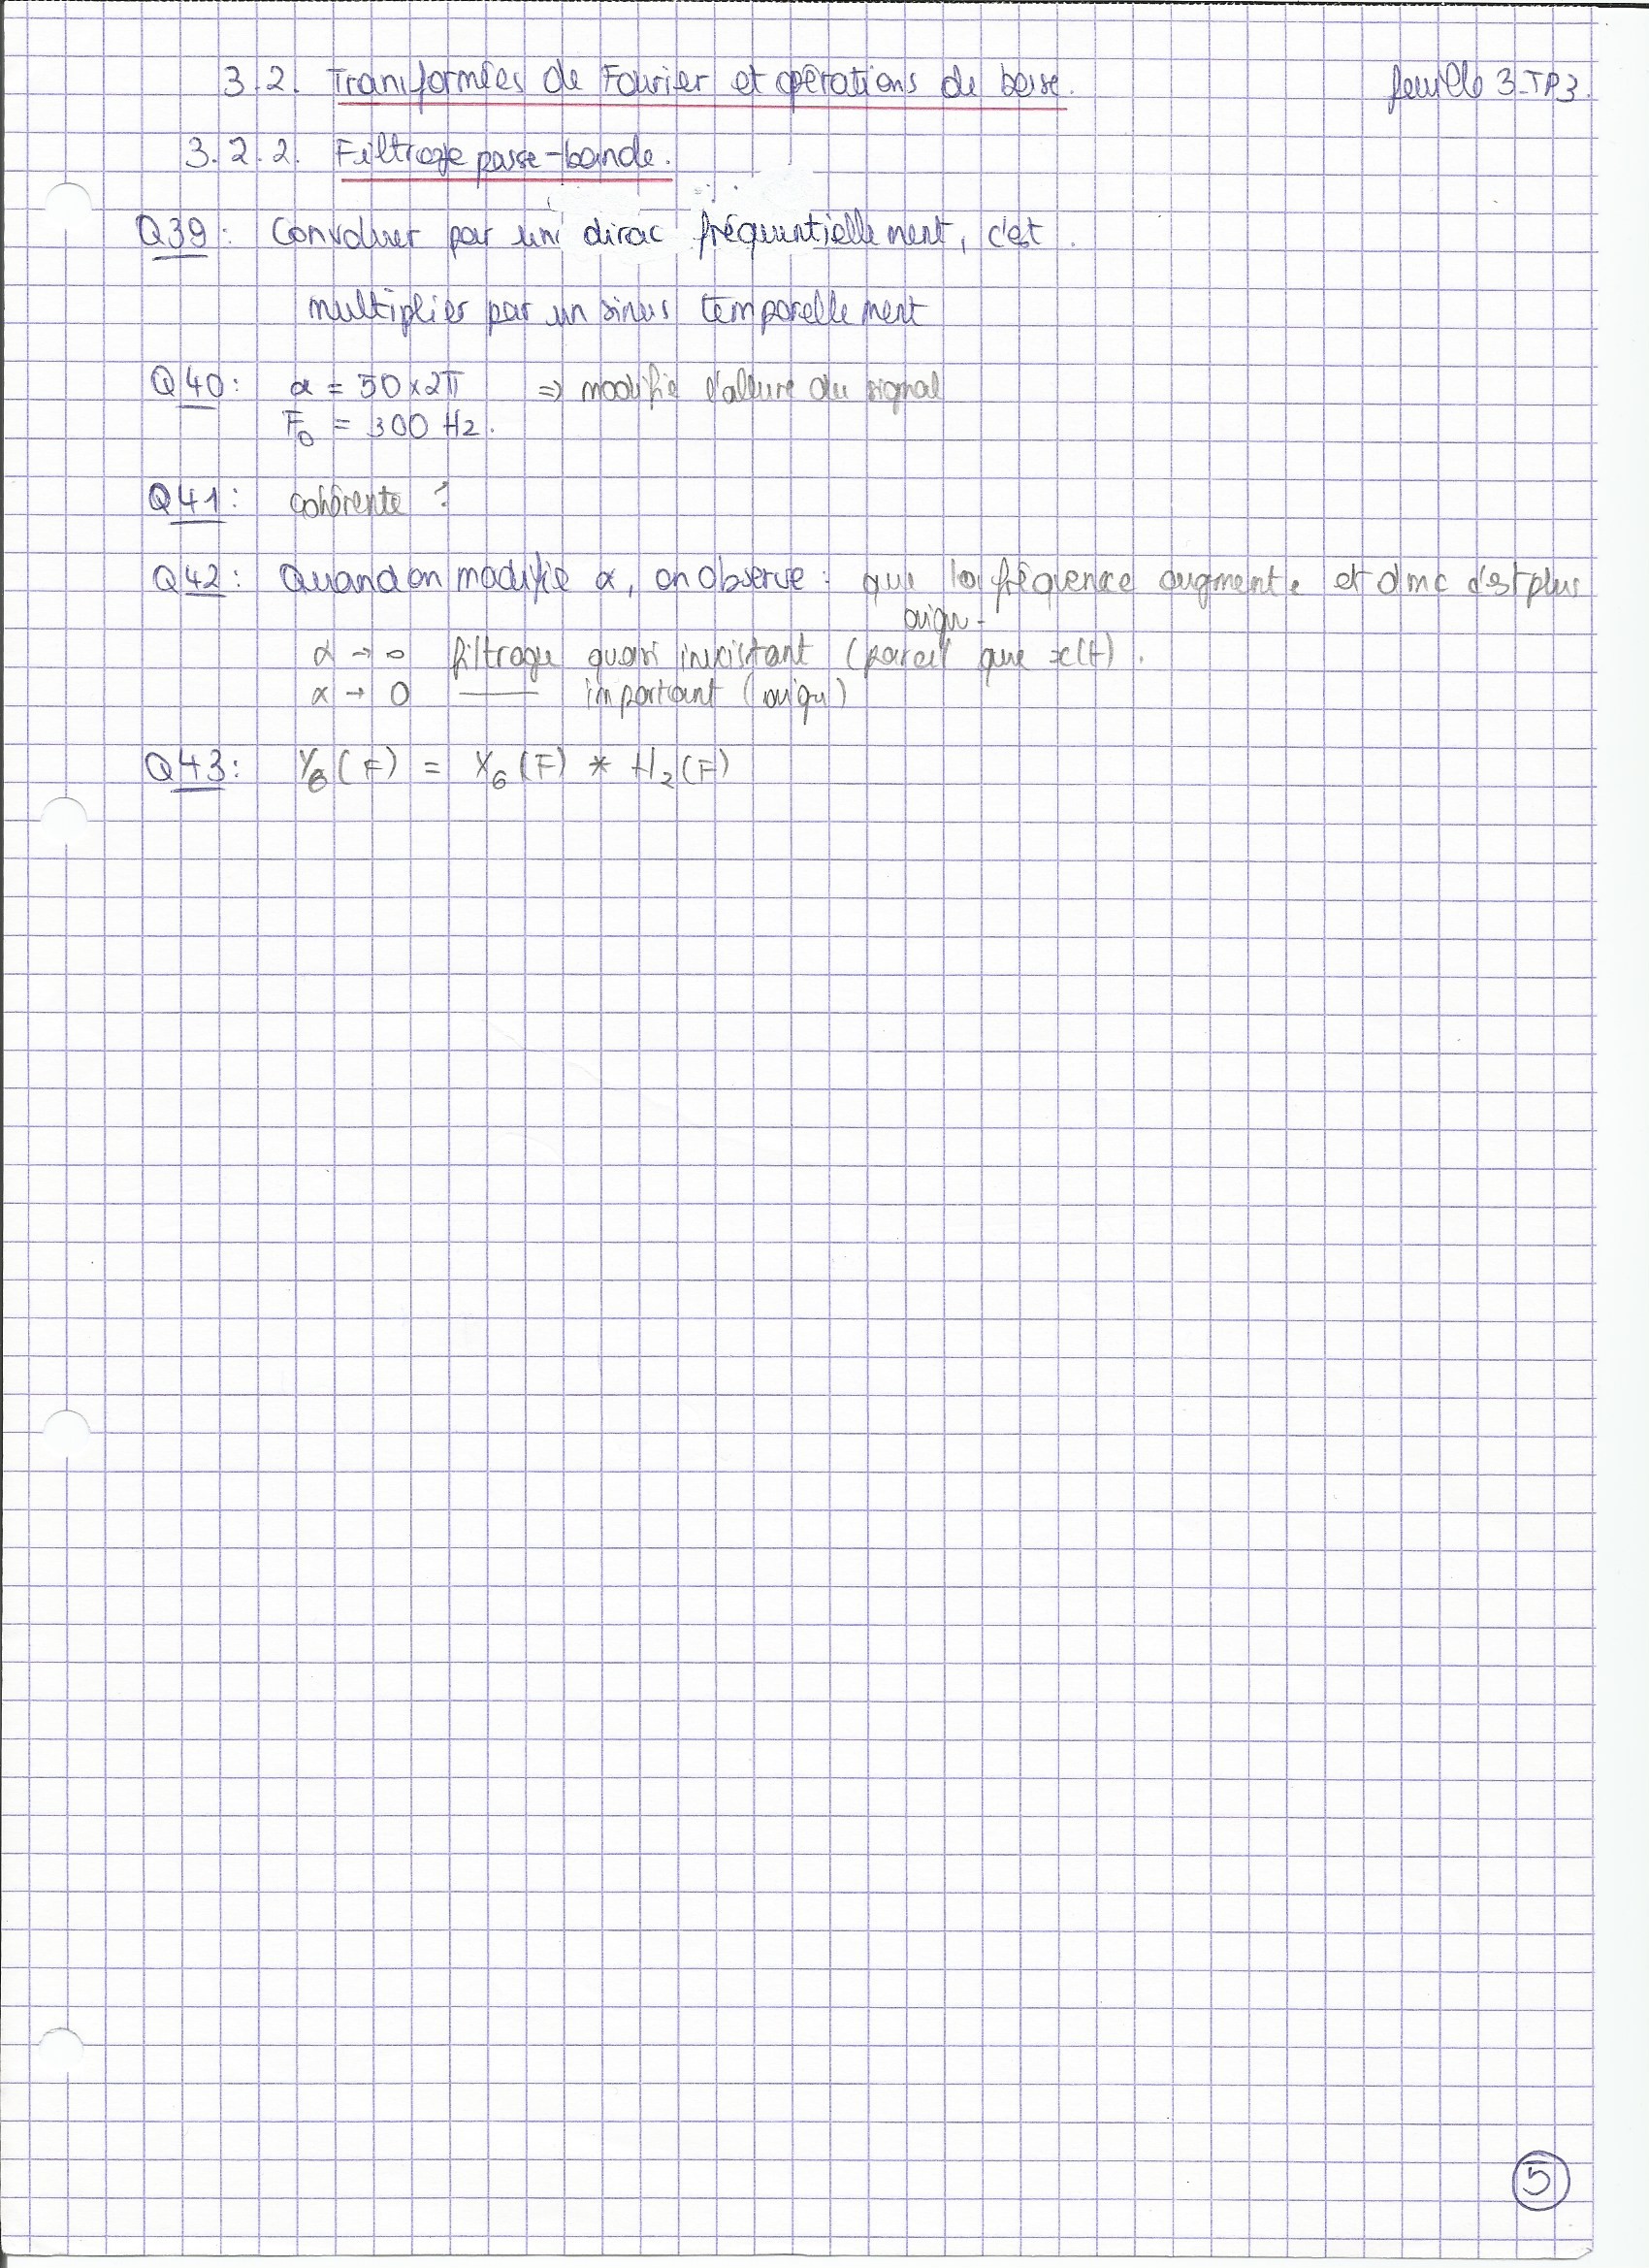 3.2. Transformées de Fourier et opérations de base. feuille 3_TP3.
3.2.2. Filtrage passe-bande.
Q39: Convoluer par un dirac fréquentiellement, c'est
multiplier par un sinus temporellement
Q40: α = 50×2π => modifie l'allure du signal
F₀ = 300 Hz.
Q41: cohérente ?
Q42: Quand on modifie α, on observe : que la fréquence augmente et donc c'est plus
aigu.
α → ∞ filtrage quasi inexistant (pareil que x(t).
α → 0 —— important (aigu)
Q43: Y₈(F) = X₆(F) * H₂(F)
5